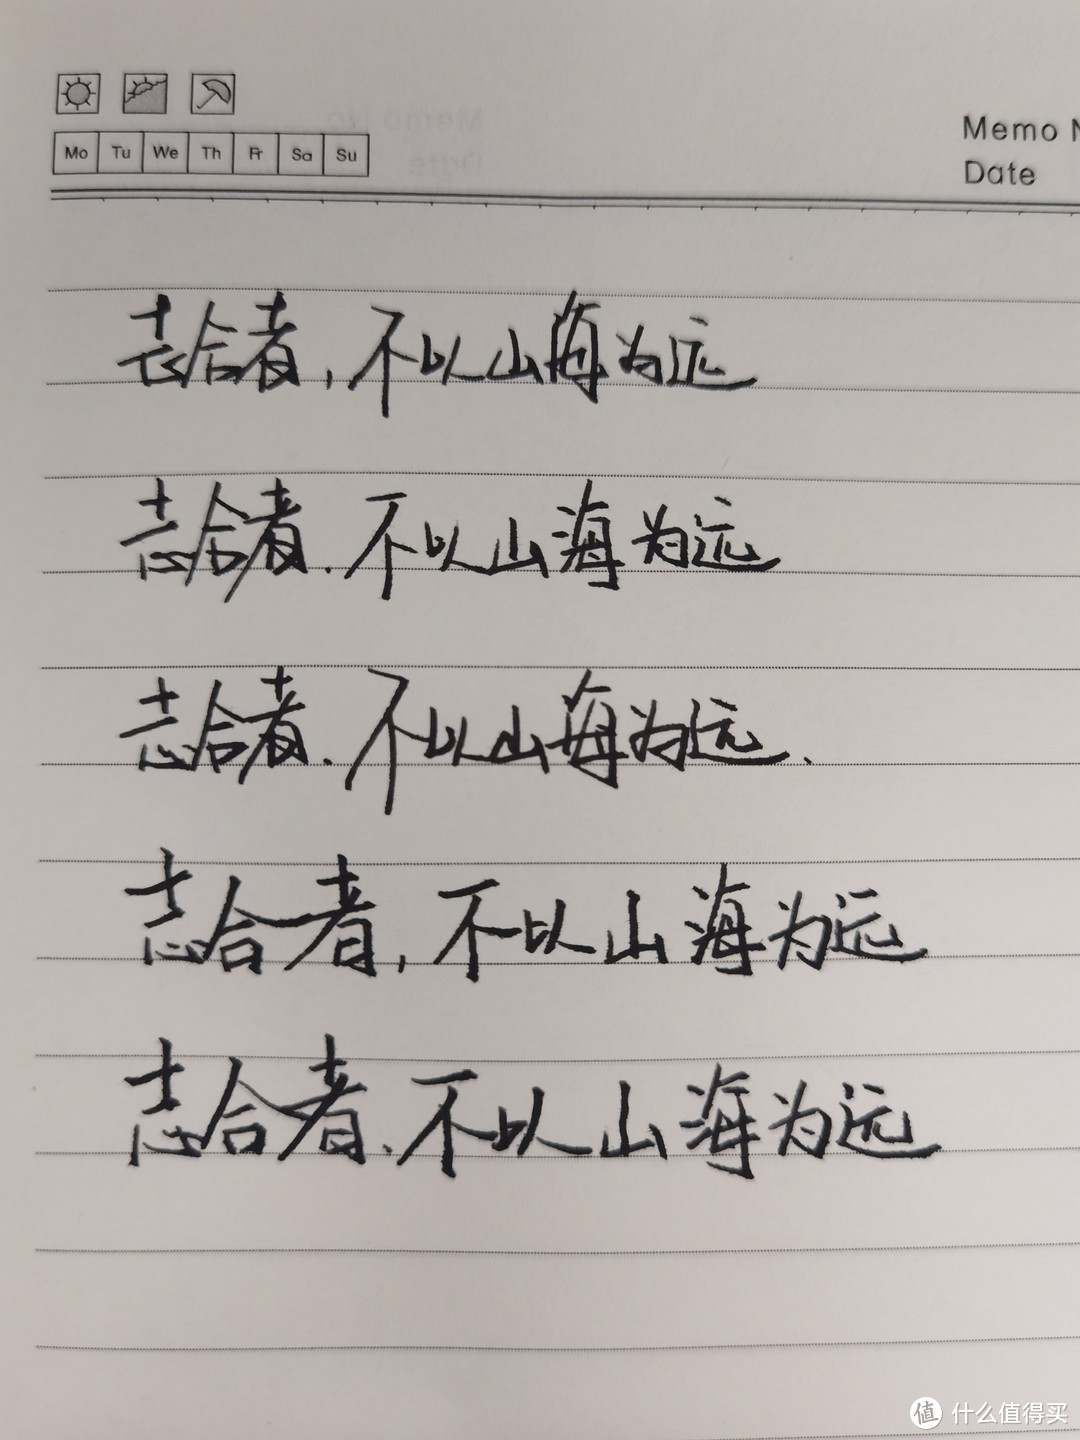 Mo Tu We Th Fr Sa Su
Memo N
Date
志合者，不以山海为远
志合者.不以山海为远
志合者.不以山海为远、
志合者，不以山海为远
志合者、不以山海为远
值 什么值得买